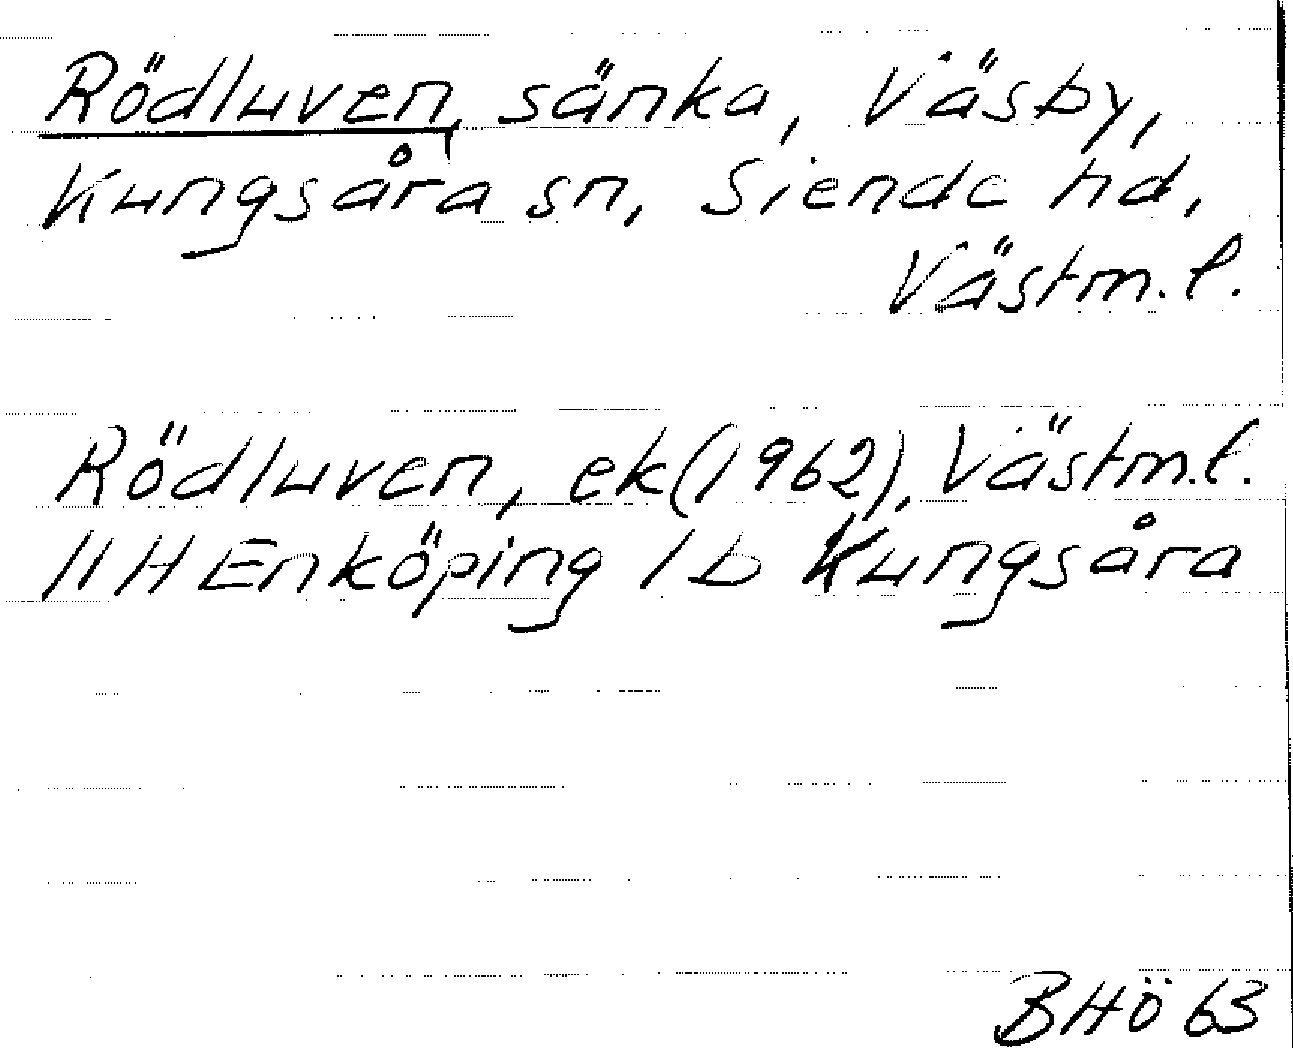 Rödluven, sänka, Väsby,
Kungsåra sn, Siende hd,
Västm.l.
Rödluven, ek(1962), Västm.l.
11H Enköping 1b Kungsåra
BHÖ 63